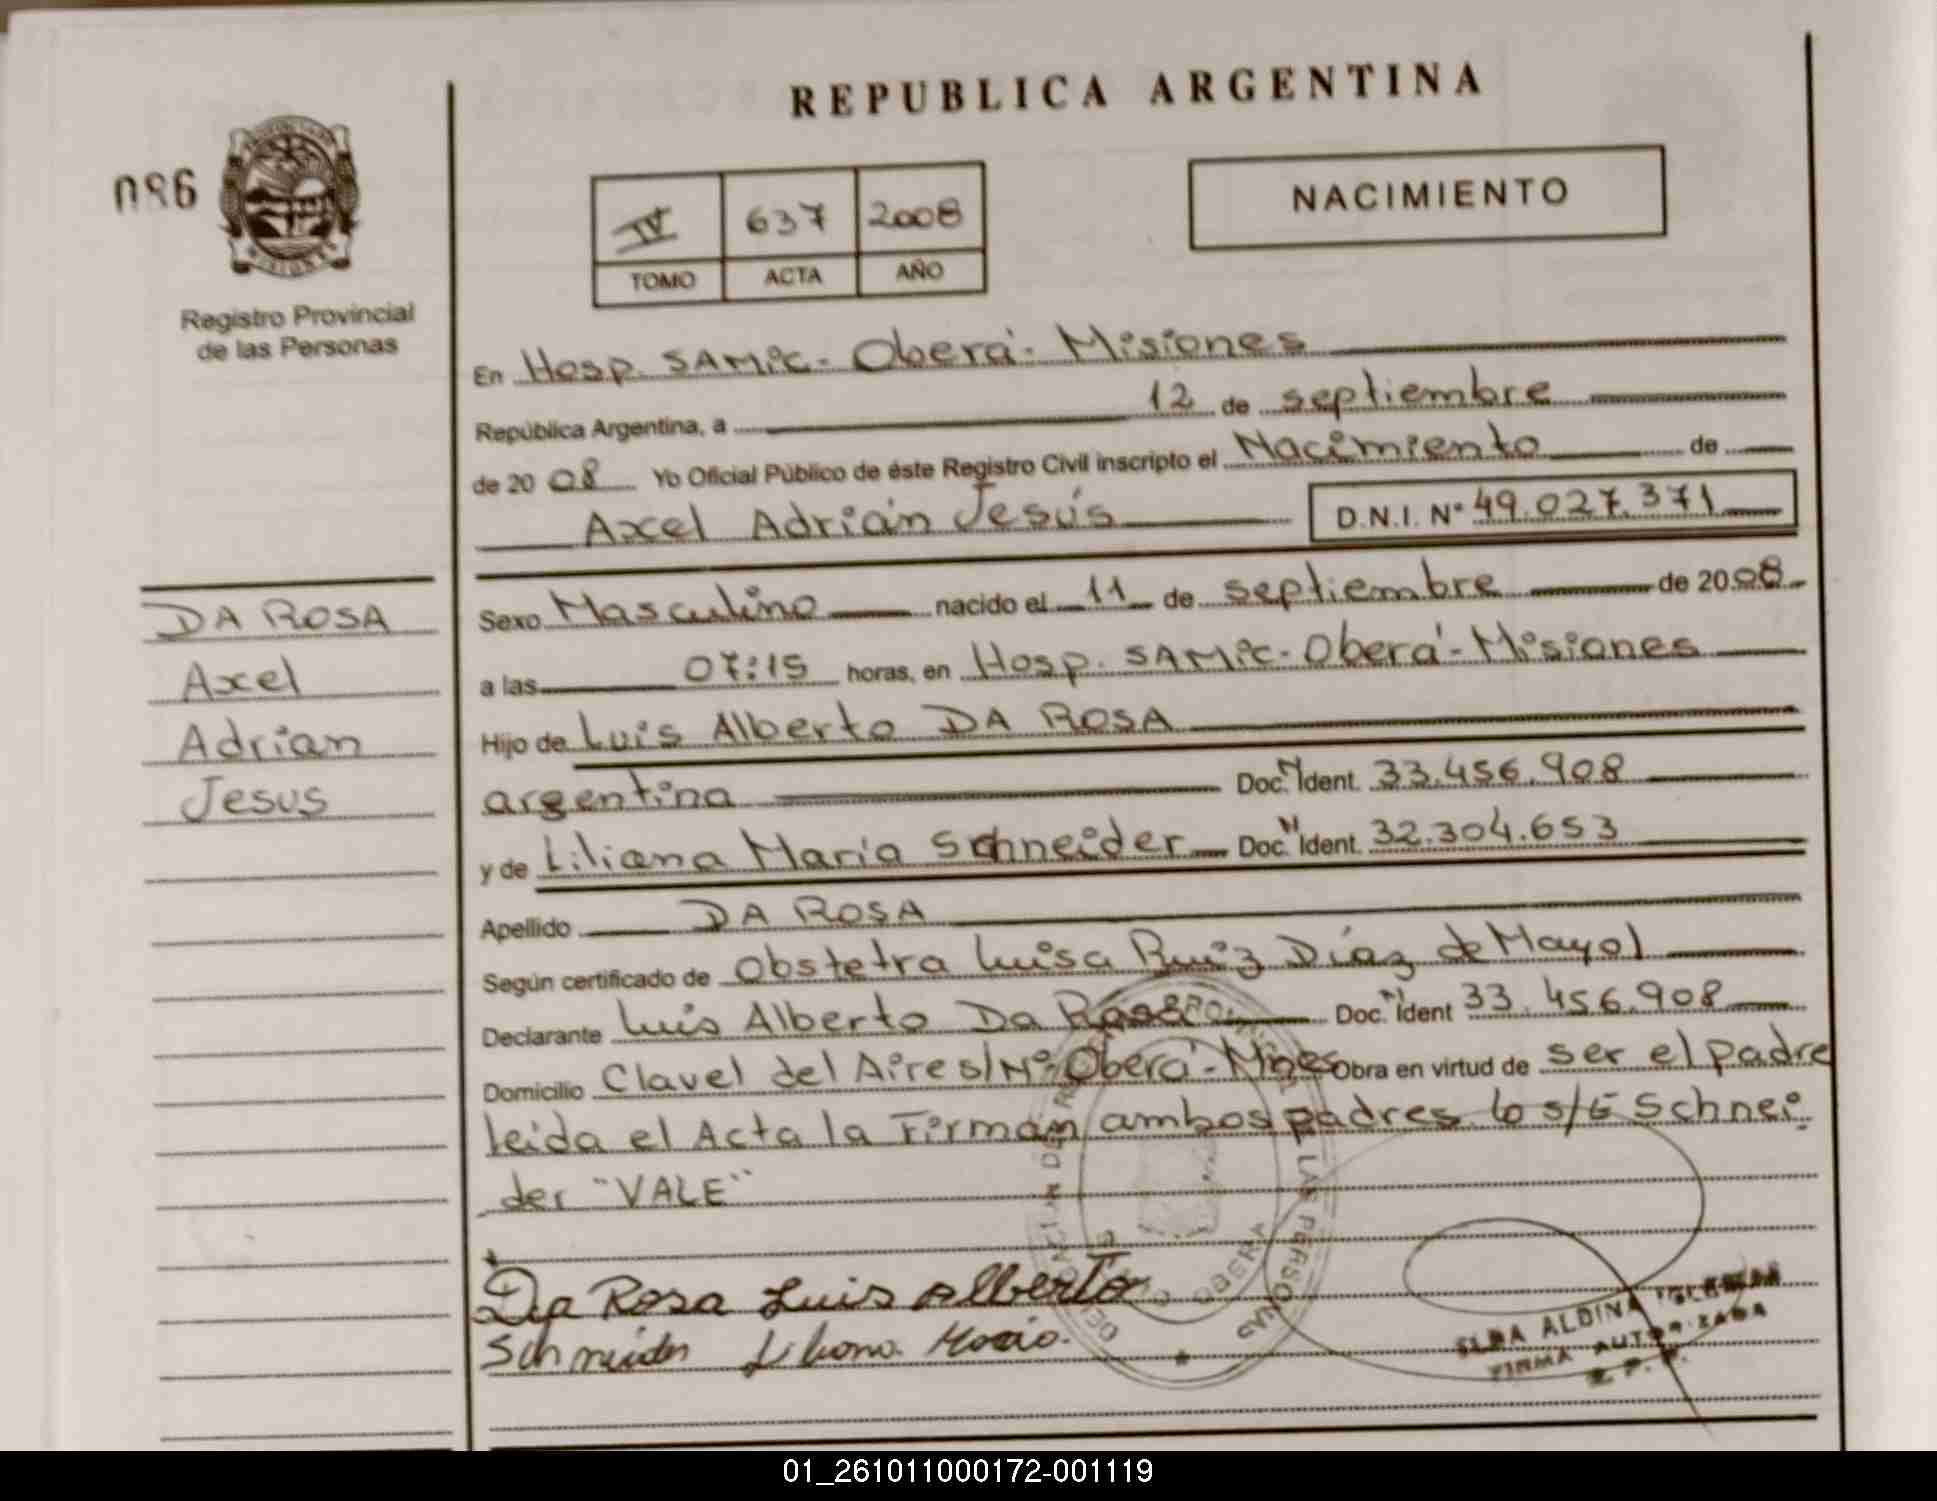 REPUBLICA ARGENTINA
086
IV 637 2008
TOMO ACTA AÑO
NACIMIENTO
MISIONES
Registro Provincial
de las Personas
En Hosp. SAMIC - Oberá - Misiones
República Argentina, a 12 de septiembre
de 2008 Yo Oficial Público de éste Registro Civil inscripto el Nacimiento de
Axel Adrián Jesús D.N.I. Nº 49.027.371
DA ROSA
Axel
Adrian
Jesus
Sexo Masculino nacido el 11 de septiembre de 2008
a las 07:15 horas, en Hosp. SAMIC - Oberá - Misiones
Hijo de Luis Alberto DA ROSA
argentina Doc. N Ident. 33.456.908
y de Liliana María Schneider Doc. N Ident. 32.304.653
Apellido DA ROSA
Según certificado de Obstetra Luisa Ruiz Díaz de Mayol
Declarante Luis Alberto Da Rosa Doc. N Ident 33.456.908
Domicilio Clavel del Aire s/Nº Oberá - Mnes Obra en virtud de ser el padre
leida el Acta la Firman ambos padres lo s/E Schnei
der "VALE"
Da Rosa Luis Alberto
Schneider Liliana Maria
DE LAS PERSONAS
OBERA
ELBA ALDINA
FIRMA AUTORIZADA
R. P. P.
01_261011000172-001119